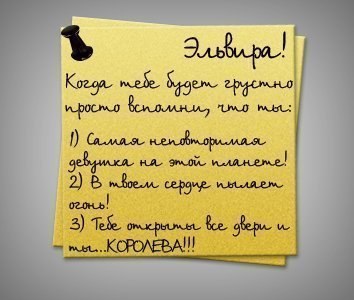 Эльвира!
Когда тебе будет грустно
просто вспомни, что ты:
1) Самая неповторимая
девушка на этой планете!
2) В твоем сердце пылает
огонь!
3) Тебе открыты все двери и
ты...КОРОЛЕВА!!!